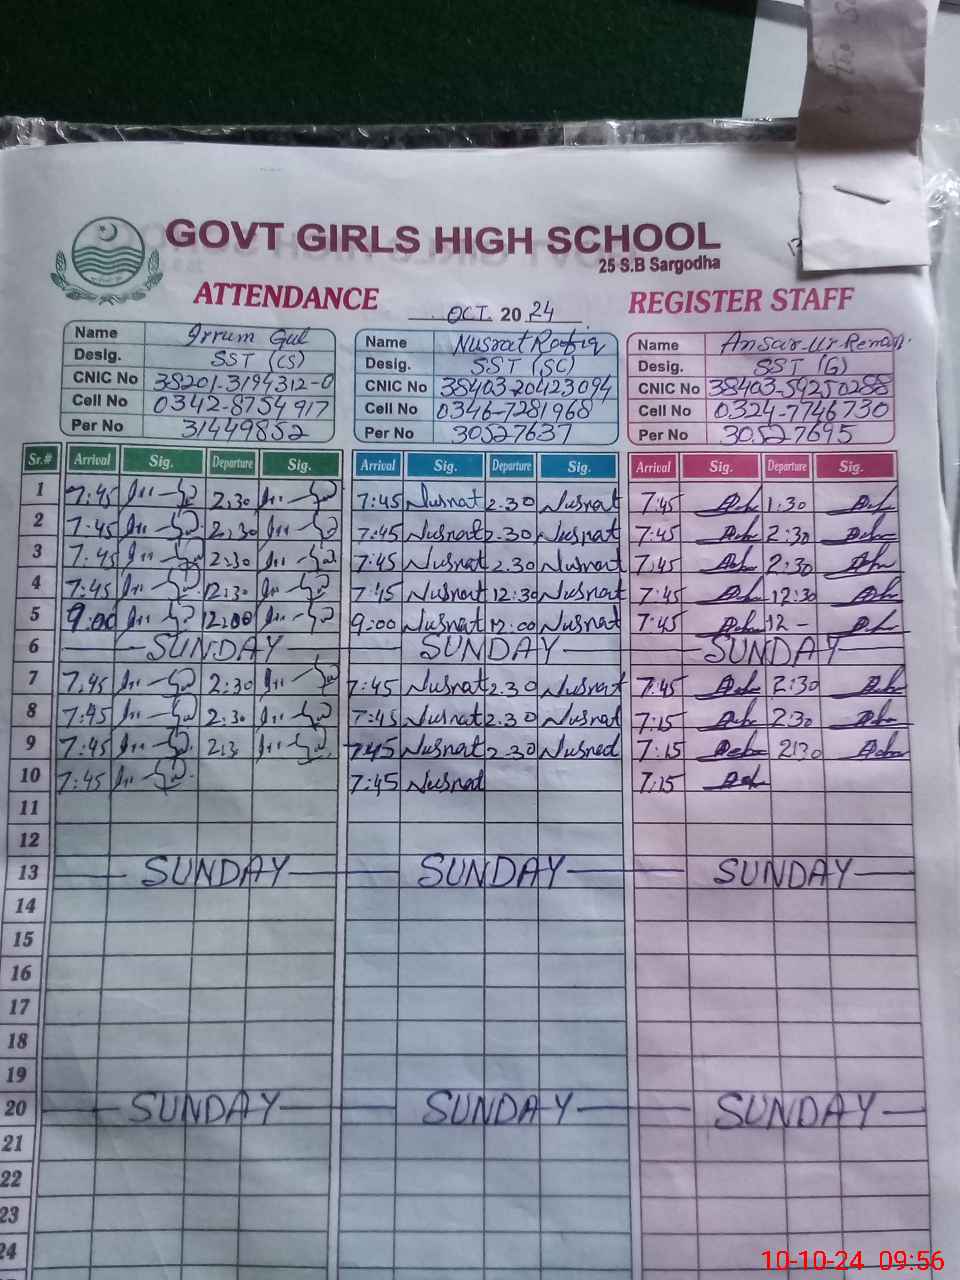 GOVT GIRLS HIGH SCHOOL
25 S.B Sargodha
ATTENDANCE OCT. 2024 REGISTER STAFF
Name Irrum Gul Name Nusrat Rafiq Name Ansar-Ur-Reman
Desig. SST (CS) Desig. SST (SC) Desig. SST (G)
CNIC No 38201-3194312-0 CNIC No 3840320423094 CNIC No 38403-54250288
Cell No 0342-8754917 Cell No 0346-7281968 Cell No 0324-7746730
Per No 31449852 Per No 30527637 Per No 30527695
Sr.# Arrival Sig. Departure Sig. Arrival Sig. Departure Sig. Arrival Sig. Departure Sig.
1 7:45 2:30 7:45 Nusrat 2.30 Nusrat 7:45 1:30
2 7:45 2:30 7:45 Nusrat 2.30 Nusrat 7:45 2:30
3 7:45 2:30 7:45 Nusrat 2.30 Nusrat 7:45 2:30
4 7:45 12:30 7:45 Nusrat 12:30 Nusrat 7:45 12:30
5 9:00 12:00 9:00 Nusrat 12:00 Nusrat 7:45 12 -
6 SUNDAY SUNDAY SUNDAY
7 7:45 2:30 7:45 Nusrat 2.30 Nusrat 7:45 2:30
8 7:45 2:30 7:45 Nusrat 2.30 Nusrat 7:15 2:30
9 7:45 2:3 7:45 Nusrat 2.30 Nusrat 7:15 2:30
10 7:45 7:45 Nusrat 7:15
11
12
13 SUNDAY SUNDAY SUNDAY
14
15
16
17
18
19
20 SUNDAY SUNDAY SUNDAY
21
22
23
24
10-10-24 09:56